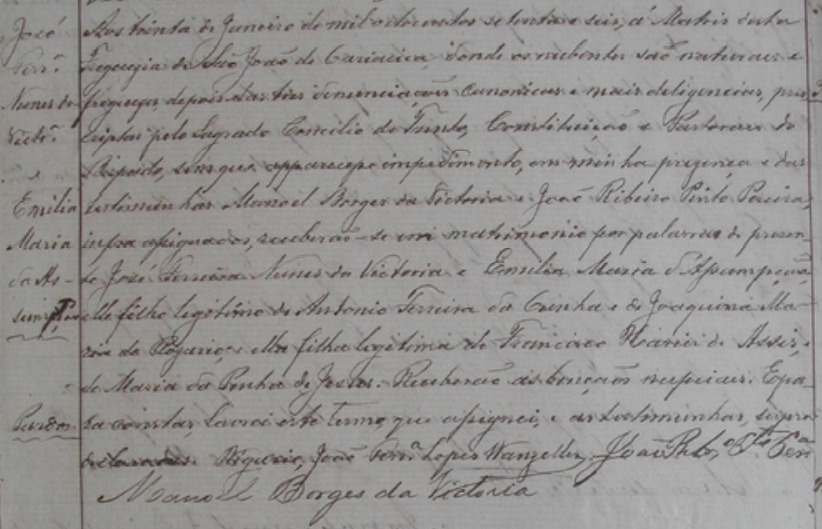 José
Ferrª
Nunes da
Victª
e
Emilia
Maria
da As-
sumpção
Pardos
Aos trinta de Janeiro de mil oitocentos setenta e seis, á Matriz desta
Freguezia de São João de Cariacica, donde os nubentes são naturaes e
freguezes, depois das tres denunciações canonicas e mais deligencias, pres
criptas pelo Sagrado Concilio de Trento, Constituição e Pastoraes do
Bispado, sem que apparecesse impedimento, em minha presença e das
testimunhas Manoel Borges da Victoria e João Ribeiro Pinto Pereira,
infra assignados, receberão-se em matrimonio por palavras de presen-
te José Ferreira Nunes da Victoria e Emilia Maria d'Assumpção,
elle filho legitimo de Antonio Ferreira da Cunha e de Joaquina Ma
ria do Rosario, e ella filha legitima de Francisco Xavier de Assis, e
de Maria da Penha de Jesus. Receberão as benções nupciaes. E pa
ra constar, lavrei este termo, que assignei, e as testimunhas, supra
declaradas. João Ferrª Lopes Wanzeller, João
Manoel Borges da Victoria